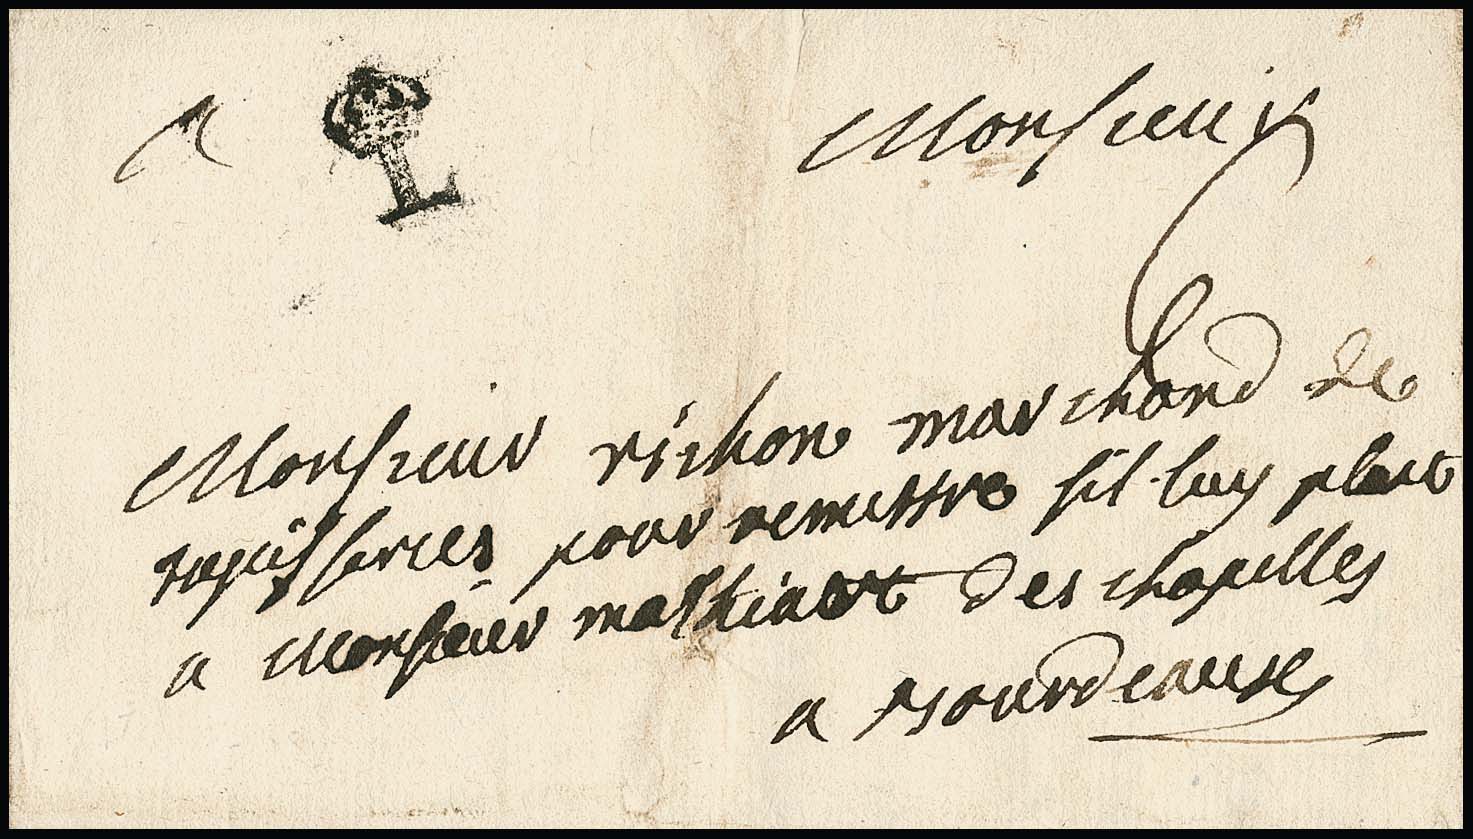 A Monsieur
Monsieur richon marchand de
tapisseries pour remettre sil luy plait
a Monsieur mathiaut des chapelles
a Bourdeaux